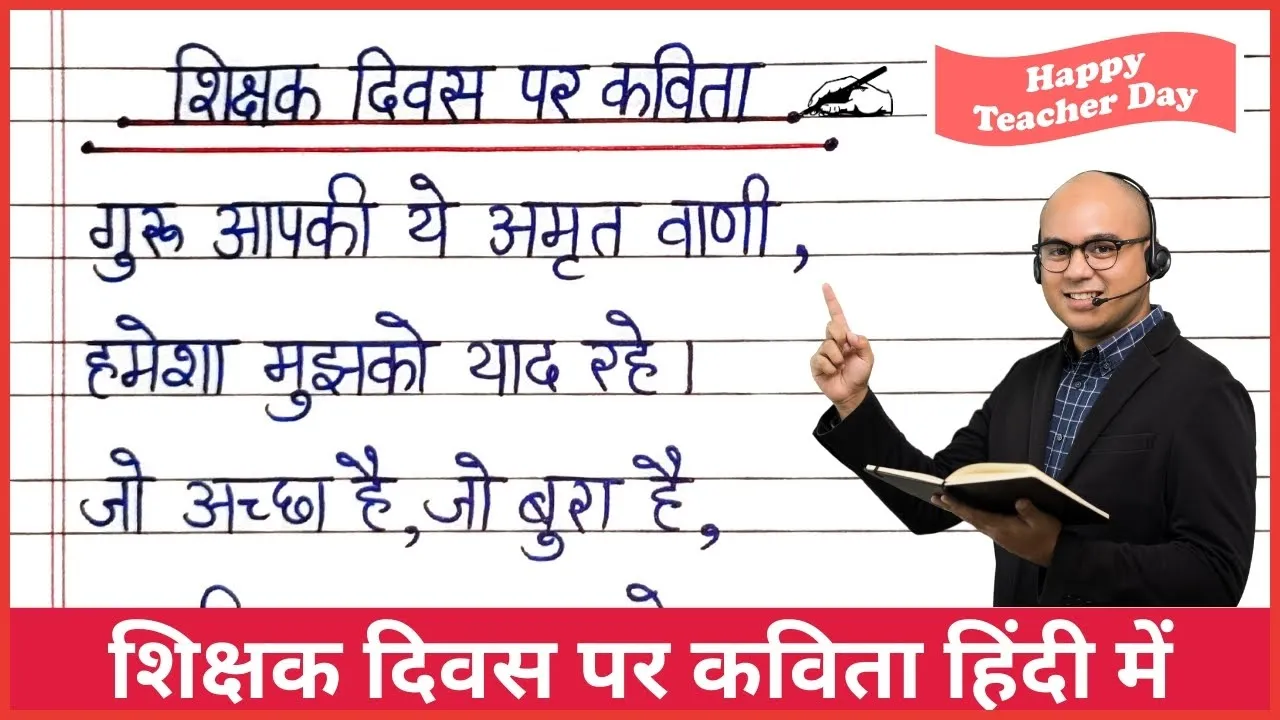 शिक्षक दिवस पर कविता
Happy
Teacher Day
गुरू आपकी ये अमृत वाणी,
हमेशा मुझको याद रहे।
जो अच्छा है,जो बुरा है,
शिक्षक दिवस पर कविता हिंदी में